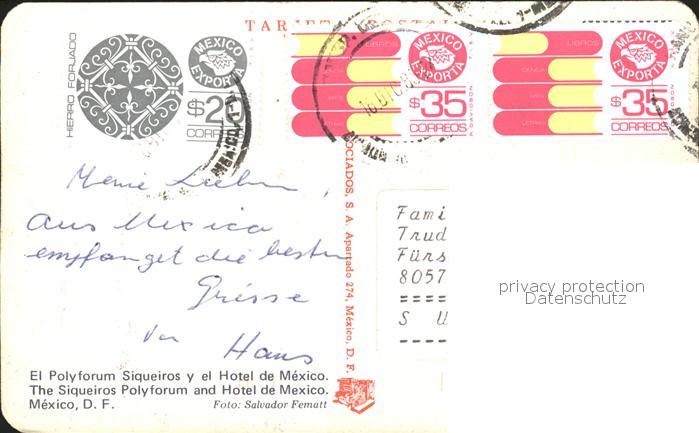 TARJETA POSTAL
HIERRO FORJADO
MEXICO
EXPORTA
CORREOS
LIBROS
MEXICO
EXPORTA
$35
CORREOS
LIBROS
MEXICO
EXPORTA
$35
CORREOS
Meine Lieben,
Aus Mexico
empfanget die besten
Grüsse
von
Hans
El Polyforum Siqueiros y el Hotel de México.
The Siqueiros Polyforum and Hotel de Mexico.
México, D. F.
Foto: Salvador Fematt
S. A. Apartado 274, México, D. F.
Fami
Trud
Fürs
8057
=====
S U
=====
privacy protection
Datenschutz